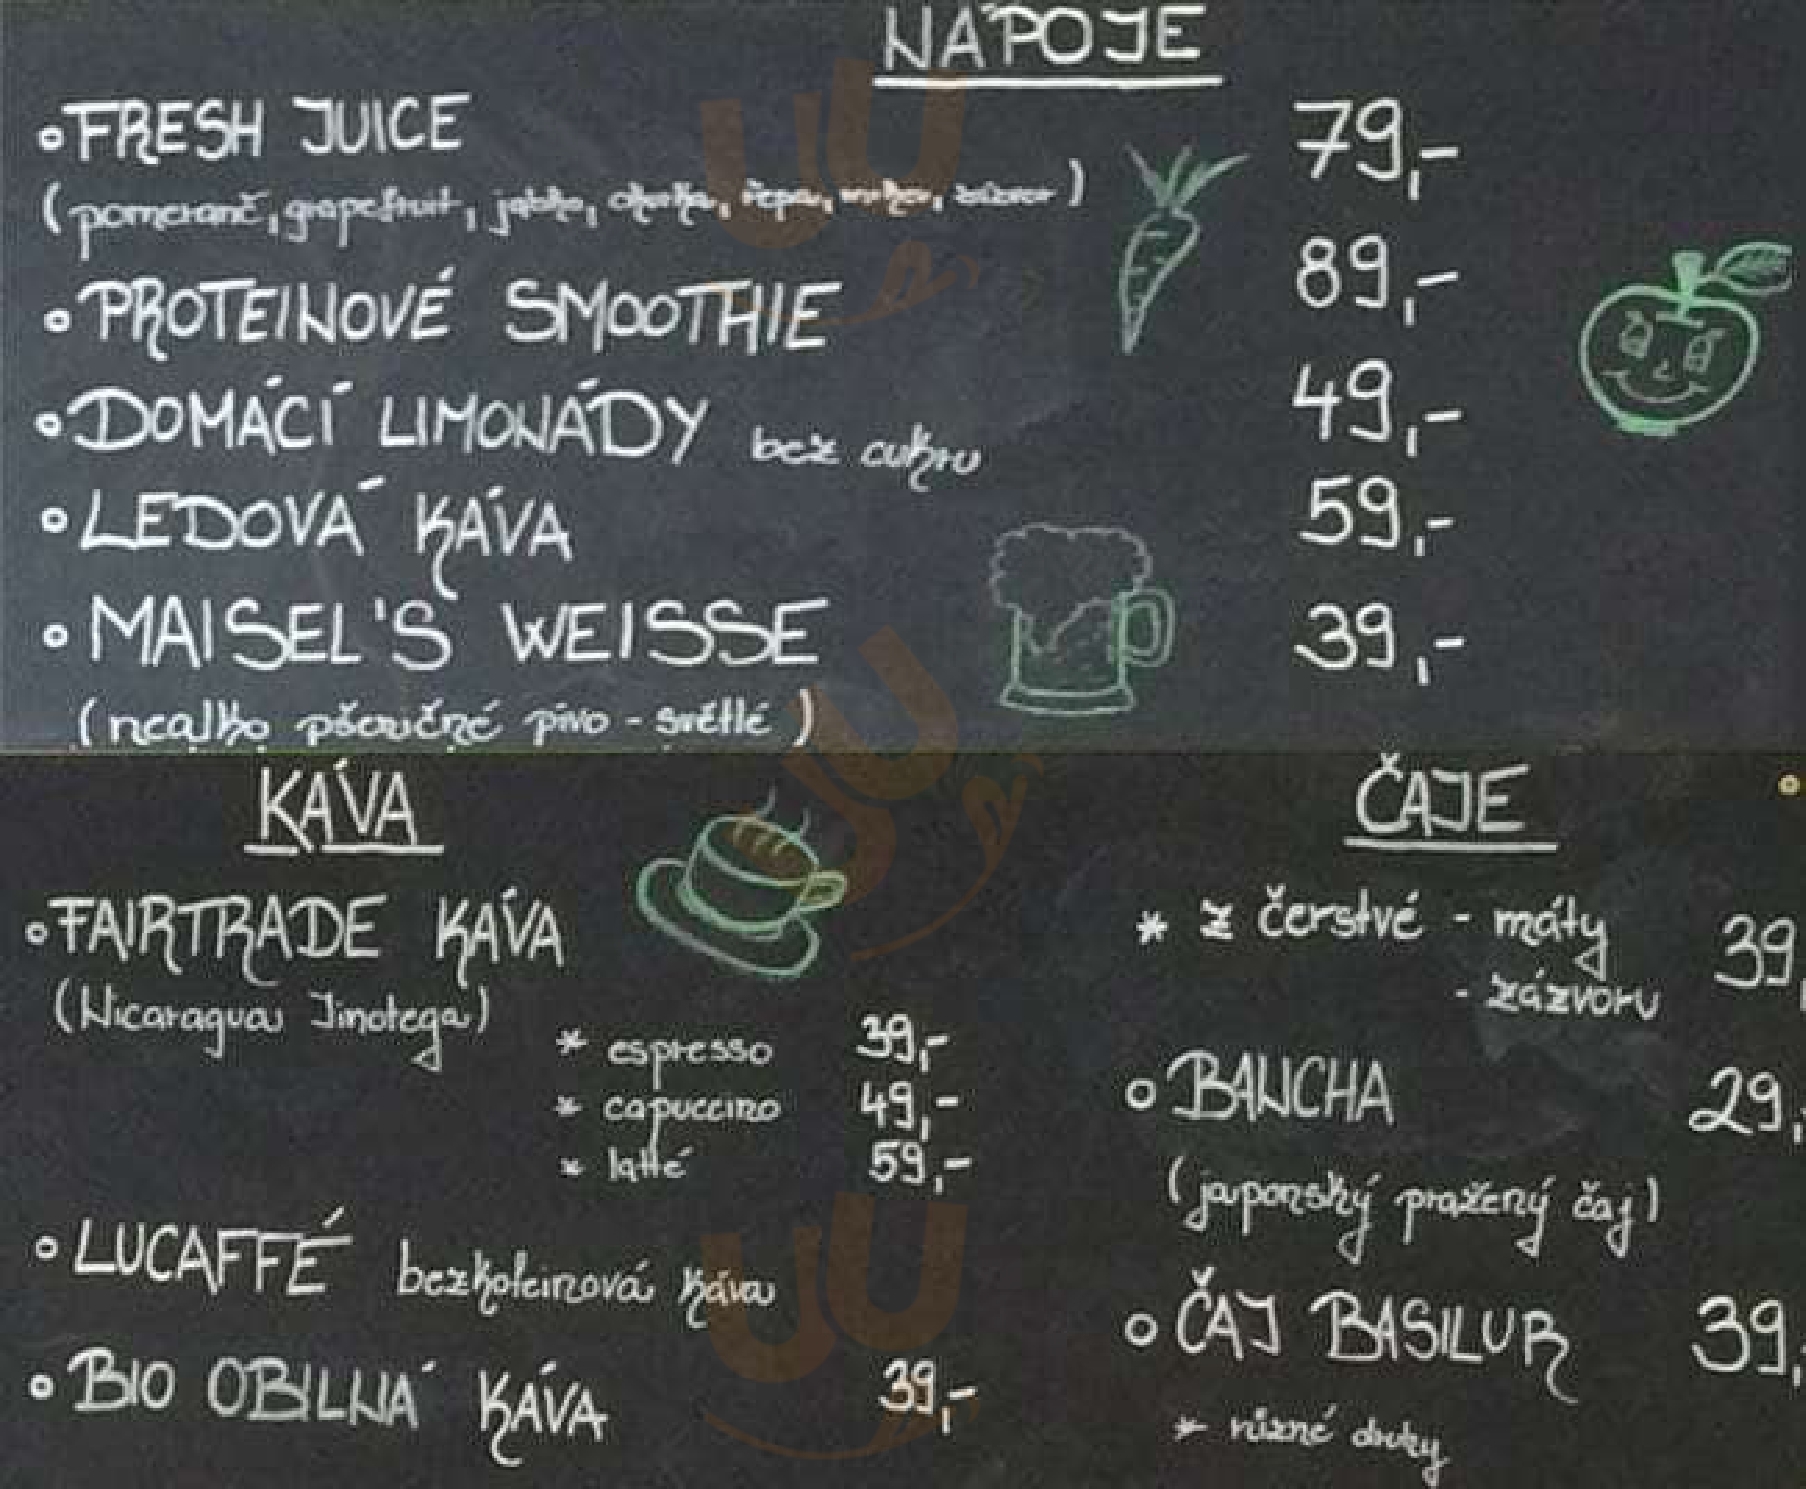 NÁPOJE
FRESH JUICE 79,-
(pomeranč, grapefruit, jablko, okurka, řepa, mrkev, zázvor)
PROTEINOVÉ SMOOTHIE 89,-
DOMÁCÍ LIMONÁDY bez cukru 49,-
LEDOVÁ KÁVA 59,-
MAISEL'S WEISSE 39,-
(nealko pšeničné pivo - světlé)
KÁVA
FAIRTRADE KÁVA
(Nicaragua Jinotega)
* espresso 39,-
* capuccino 49,-
* latté 59,-
LUCAFFÉ bezkofeinová káva
BIO OBILNÁ KÁVA 39,-
ČAJE
* z čerstvé - máty 39,
- zázvoru
BANCHA 29,-
(japonský pražený čaj)
ČAJ BASILUR 39,-
* různé druhy